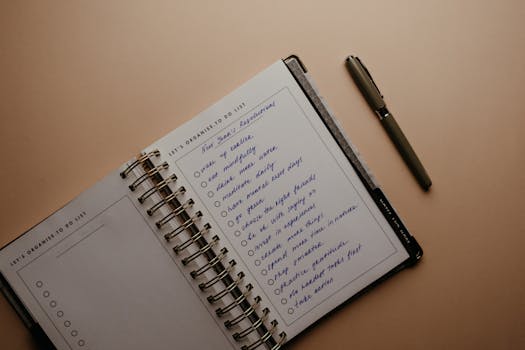 LET'S ORGANISE. TO DO LIST
LET'S ORGANISE. TO DO LIST
New Year's Resolutions
wake up earlier
eat mindfully
drink more water
meditate daily
have mental rest days
go green
choose the right friends
be ok with saying no
invest in experiences
create more things
spend more time in nature
shop smarter
practice gratitude
do hardest tasks first
take action